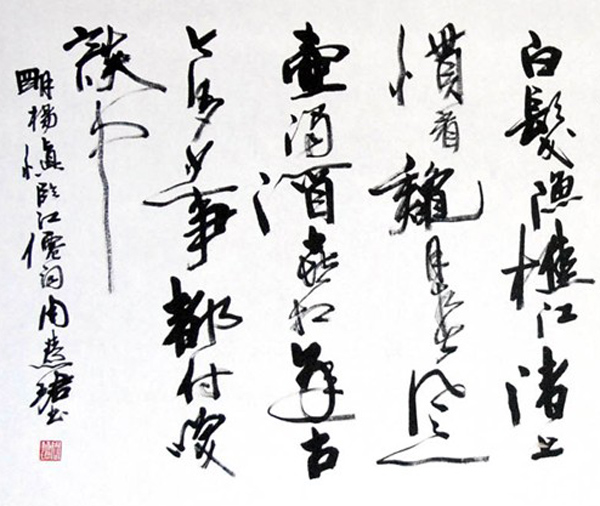 白髮漁樵江渚上
慣看龝月春風一
壺濁酒喜相逢古
今多少事都付咲
談中
明楊慎臨江僊词周慧珺书